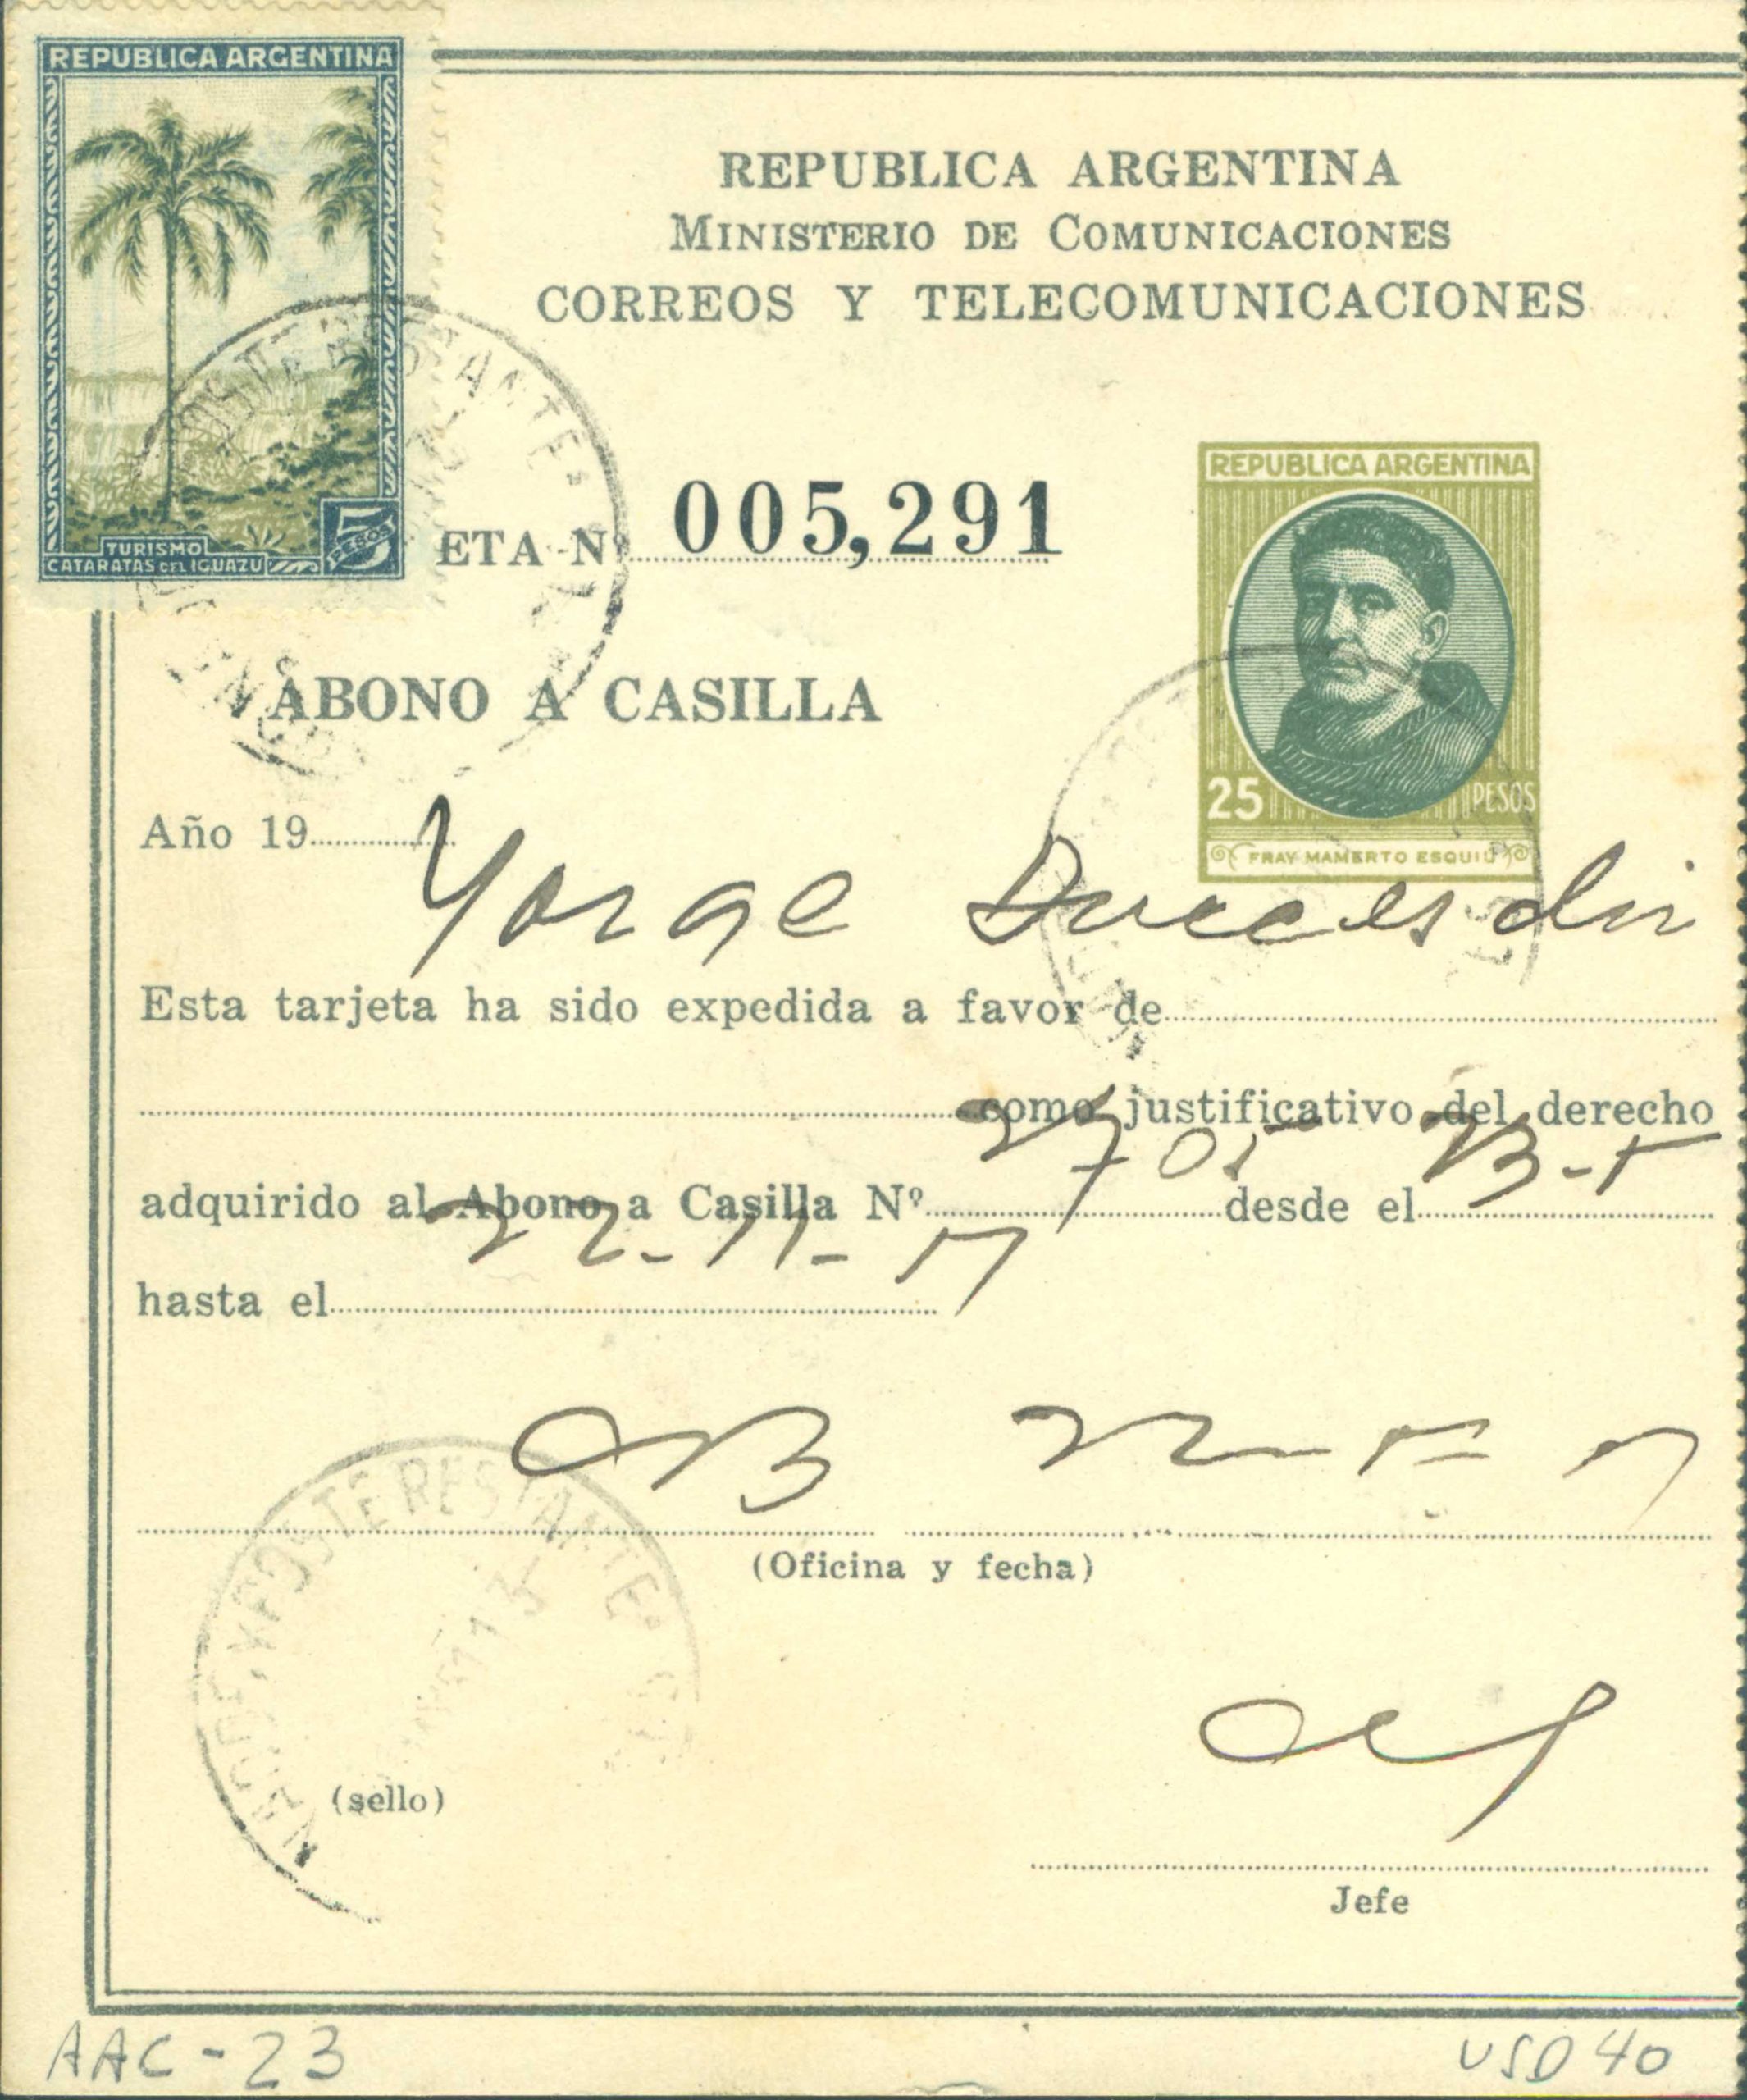 REPUBLICA ARGENTINA
TURISMO
CATARATAS DEL IGUAZU
5 PESOS
REPUBLICA ARGENTINA
MINISTERIO DE COMUNICACIONES
CORREOS Y TELECOMUNICACIONES
ETA Nº 005,291
REPUBLICA ARGENTINA
25 PESOS
FRAY MAMERTO ESQUIU
ABONO A CASILLA
Año 19
Yorge
Esta tarjeta ha sido expedida a favor de
como justificativo del derecho
adquirido al Abono a Casilla Nº 2705 desde el
hasta el 22-11-
(Oficina y fecha)
POSTE RESTANTE
(sello)
Jefe
AAC-23
USD 40